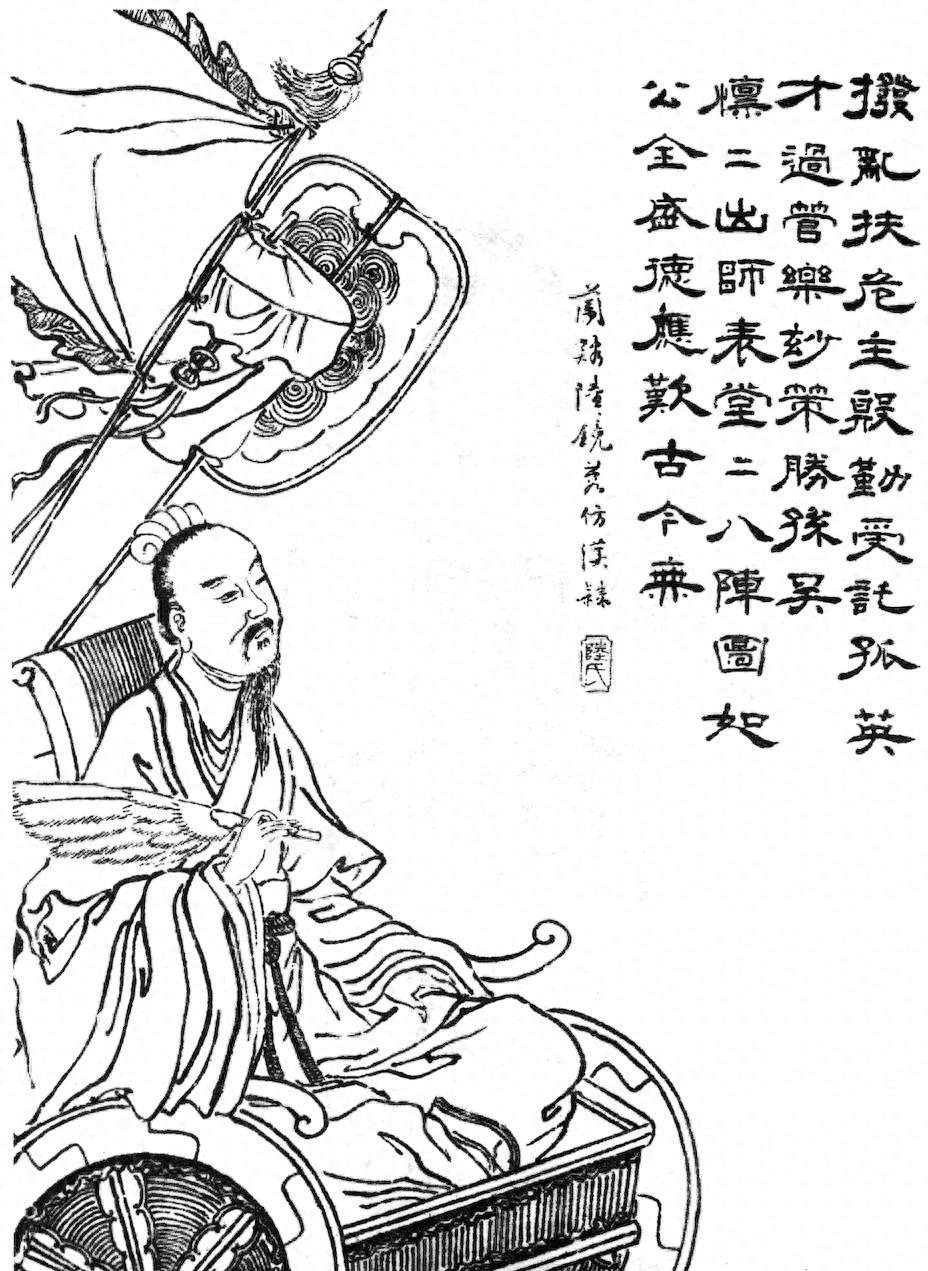 撥亂扶危主殷勤受託孤英
才過管樂玅策勝孫吳
懍二出師表堂二八陳圖如
公全盛德應歎古今無
蘭谿陸鏡仿漢隸
陸氏